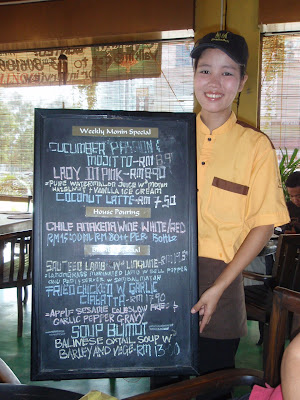 Weekly Monin Special
CUCUMBER PASSION &
MOJITTO-RM 8.9
LADY IN PINK-RM 9.90
*PURE WATERMELON JUICE W MONIN
HAZELNUT & VANILLA ICE CREAM
COCONUT LATTE - RM 7.50
House Pouring
CHILE ANAKENA WINE WHITE/RED
PER BOTTLE
Special
SAUTEED LAMB W LINGUINE
MARINATED LAMB W BELL PEPPER
FRIED CHICKEN W GARLIC
CIABATTA-RM 17.90
*APPLE SESAME COLESLAW FRIES &
GARLIC PEPPER GRAVY
SOUP BUNTUT
BALINESE OXTAIL SOUP W
BARLEY AND VEGE-RM 13.